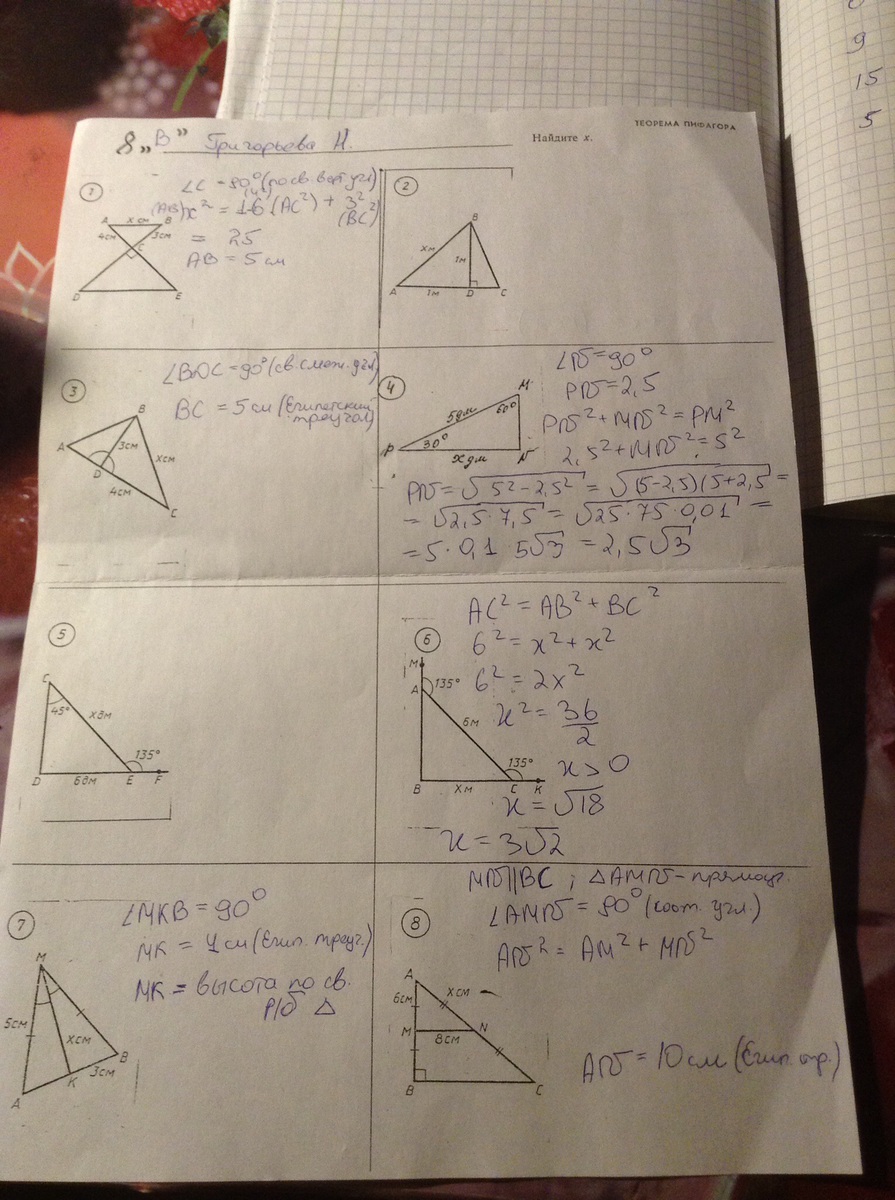 9
15
5
ТЕОРЕМА ПИФАГОРА
8 „В" Григорьева Н.
Найдите x.
1
∠C = 90° (по св. верт. угл)
(AB) x² = 16 (AC²) + 3² (BC)²
= 25
AB = 5 см
A x см B
4см 3см
C
D E
2
B
xм 1м
A 1м D C
3
∠BDC = 90° (св. смеж. угл)
BC = 5 см (Египетский треугол)
B
A 3см xсм
D
4см
C
4
∠N = 90°
PN = 2,5
PN² + MN² = PM²
2,5² + MN² = 5²
M
5дм 60°
P 30° N
x дм
PN = √5² - 2,5² = √(5-2,5)(5+2,5 =
= √2,5 · 7,5 = √25 · 75 · 0,01 =
= 5 · 0,1 · 5√3 = 2,5√3
5
C
45° xдм
135°
D 6дм E F
6
AC² = AB² + BC²
6² = x² + x²
6² = 2x²
x² = 36/2
x > 0
x = √18
x = 3√2
M
A 135°
6м
135°
B xм C K
7
∠MKB = 90°
MK = 4см (Егип. треуг.)
MK = высота по св.
р/б Δ
M
5см xсм
B
K 3см
A
8
MN||BC ; ΔAMN - прямоуг.
∠AMN = 90° (соот. угл.)
AN² = AM² + MN²
A
6см xсм
M 8см N
B C
AN = 10 см (Егип. тр.)